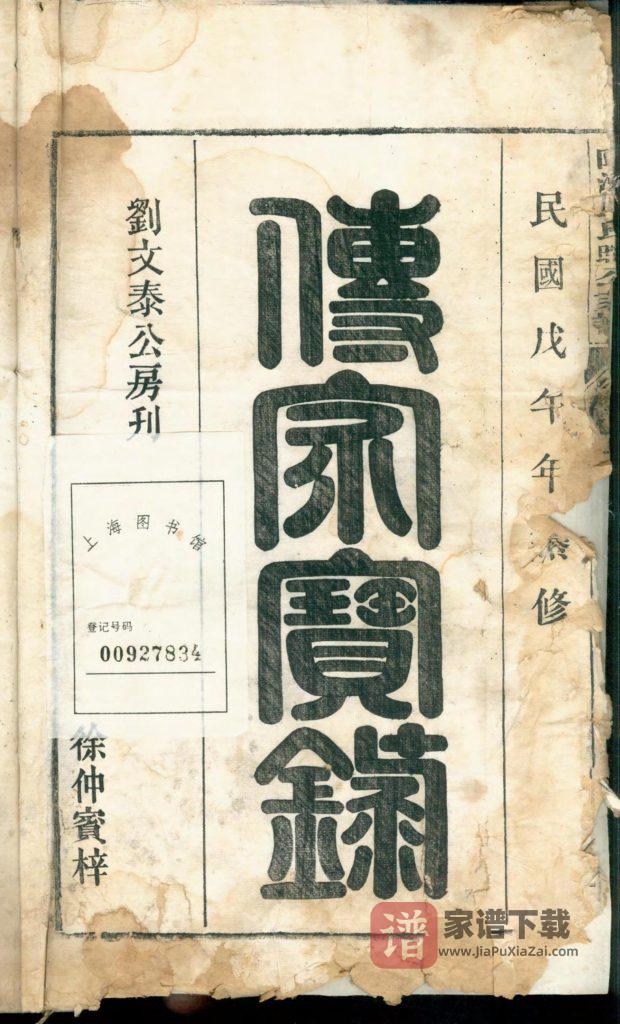 民國戊午年 修
傳家寶錄
劉文泰公房刊
徐仲賓梓
上海图书馆
登记号码
00927834
谱
家谱下载
www.JiaPuXiaZai.com